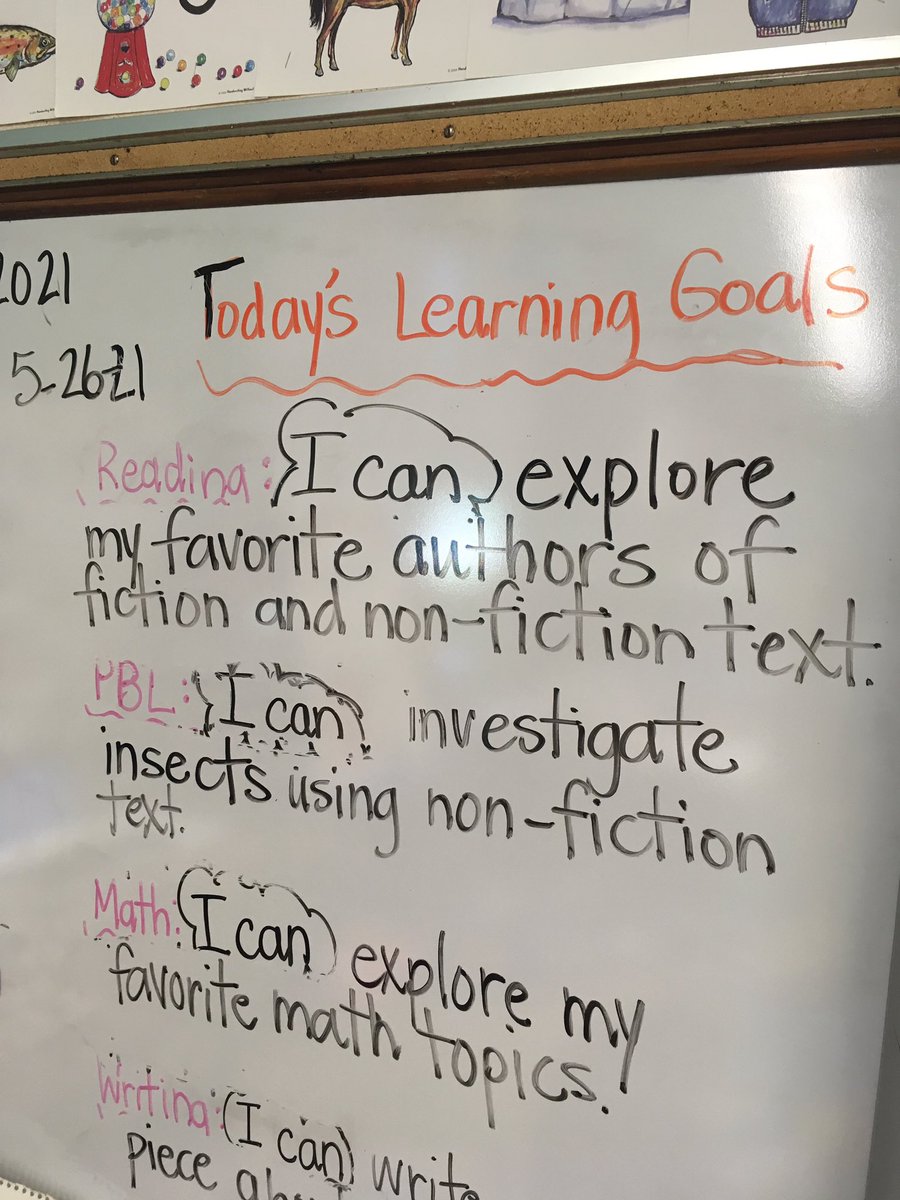 2021
5-26-21
Today's Learning Goals
Reading: I can explore
my favorite authors of
fiction and non-fiction text.
PBL: I can investigate
insects using non-fiction
text.
Math: I can explore my
favorite math topics!
Writing: (I can) write
piece